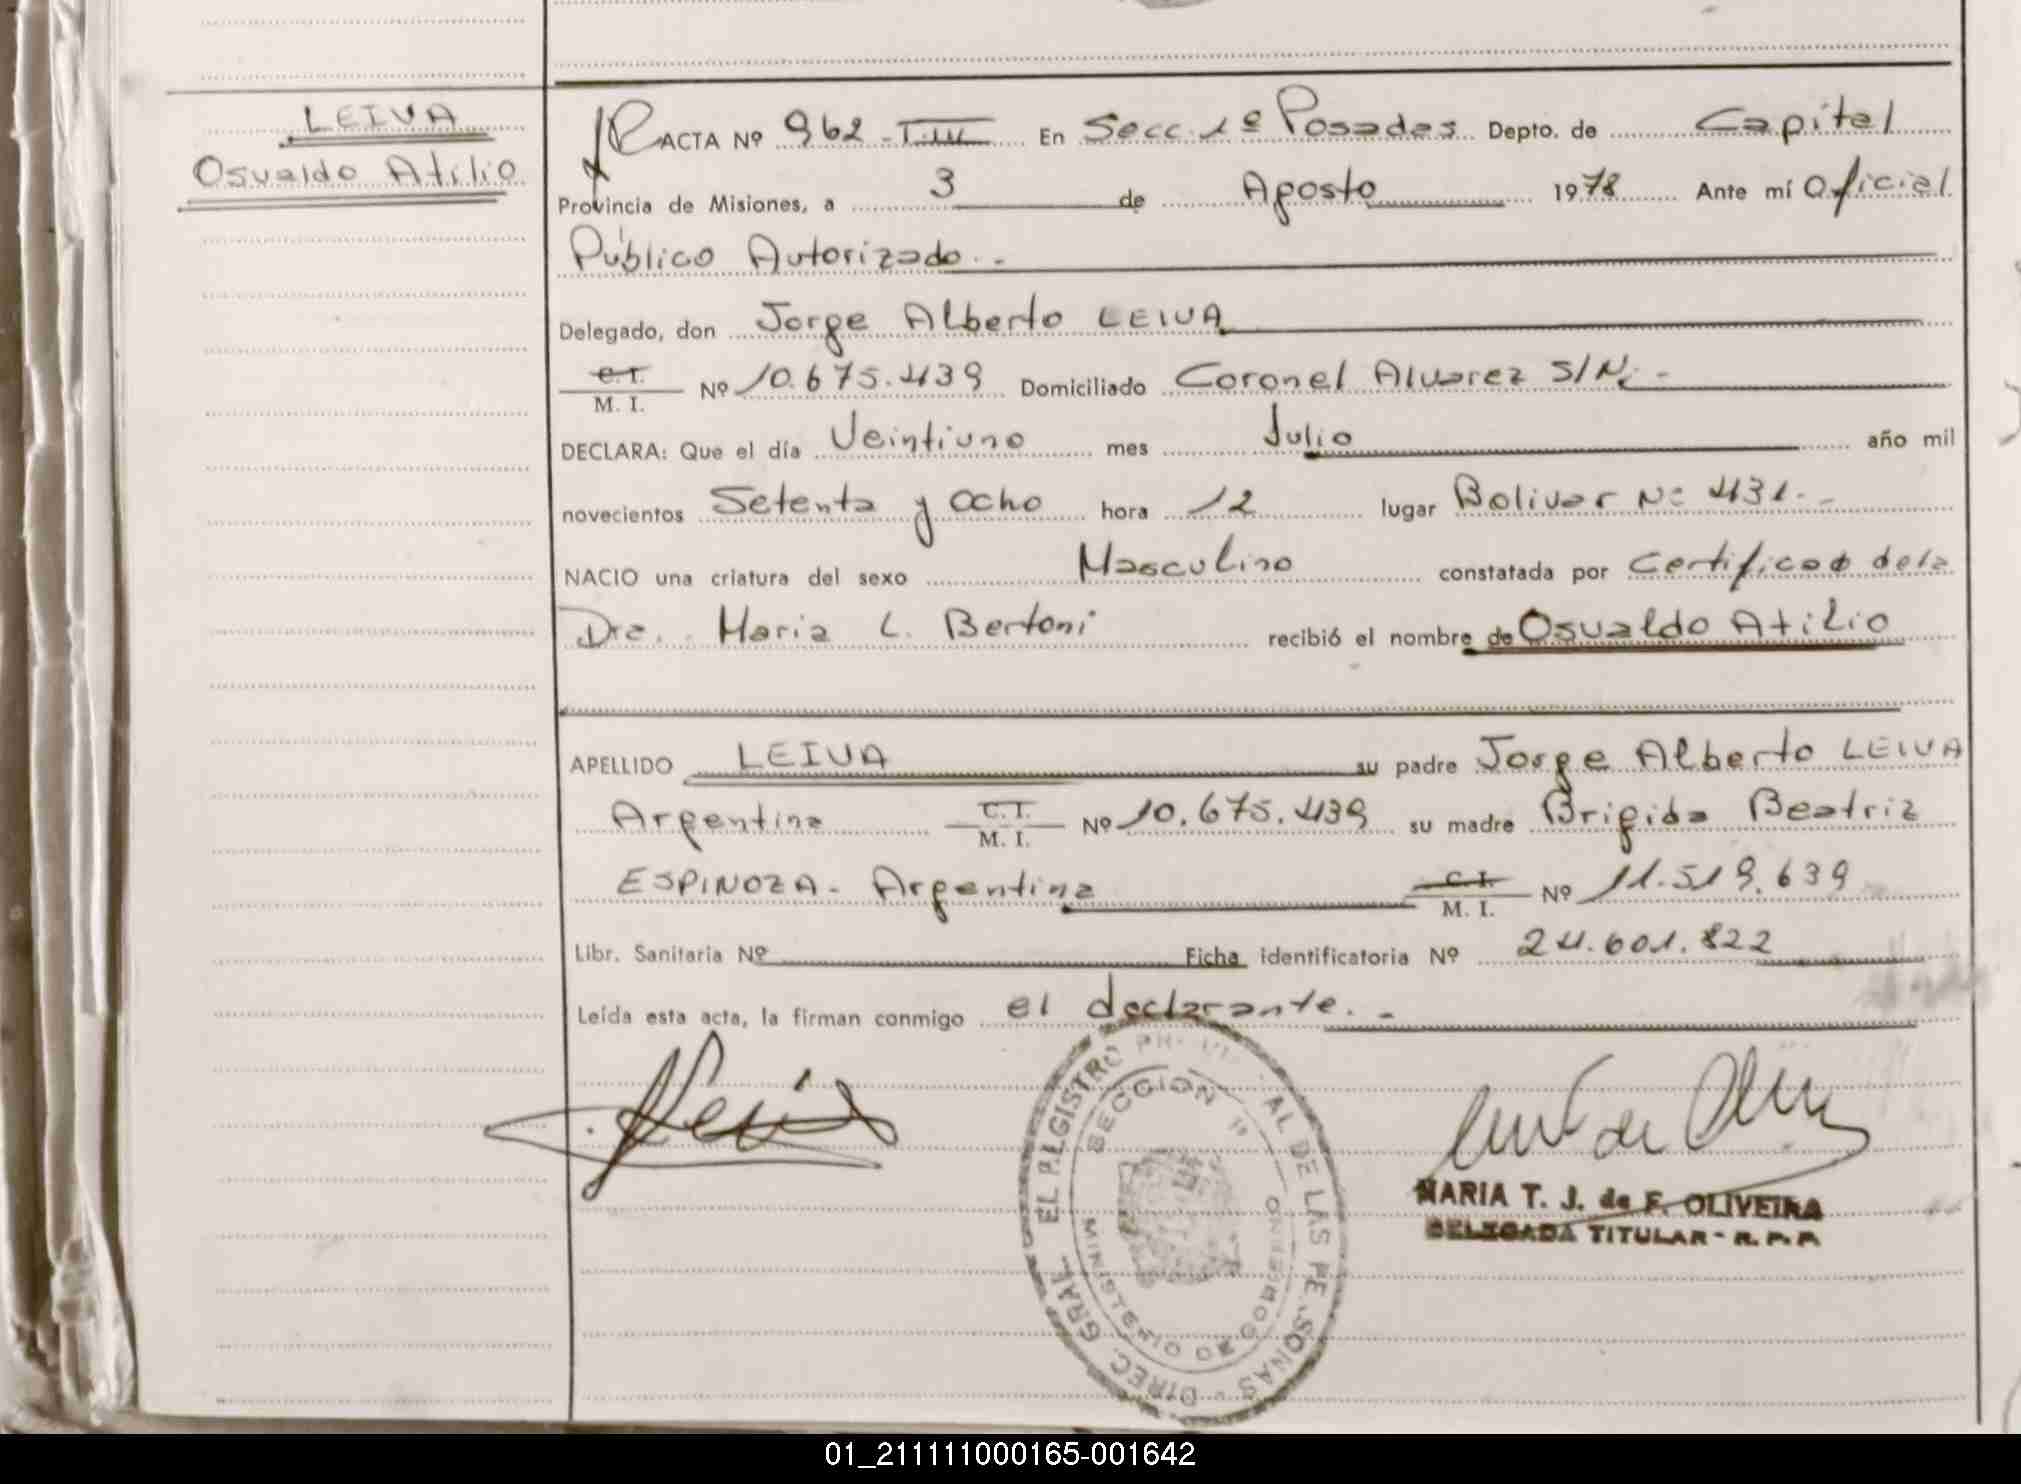 LEIVA
Osvaldo Atilio
ACTA Nº 962 - T.III En Secc. 1º Posadas Depto. de Capital
Provincia de Misiones, a 3 de Agosto 1978 Ante mí Oficial
Público Autorizado.-
Delegado, don Jorge Alberto LEIVA
C.I.
M. I. Nº 10.675.439 Domiciliado Coronel Alvarez S/N.-
DECLARA: Que el día Veintiuno mes Julio año mil
novecientos Setenta y Ocho hora 12 lugar Bolivar Nº 431.-
NACIO una criatura del sexo Masculino constatada por Certificado de la
Dra. Maria L. Bertoni recibió el nombre de Osvaldo Atilio
APELLIDO LEIVA su padre Jorge Alberto LEIVA
Argentina C.I. M. I. Nº 10.675.439 su madre Brigida Beatriz
ESPINOZA - Argentina C.I. M. I. Nº 11.519.639
Libr. Sanitaria Nº Ficha identificatoria Nº 24.601.822
Leída esta acta, la firman conmigo el declarante.-
Leiva
SECCION 1ª
MINISTERIO DE GOBIERNO
MARIA T. J. de F. OLIVEIRA
DELEGADA TITULAR - R. P. P.
01_211111000165-001642